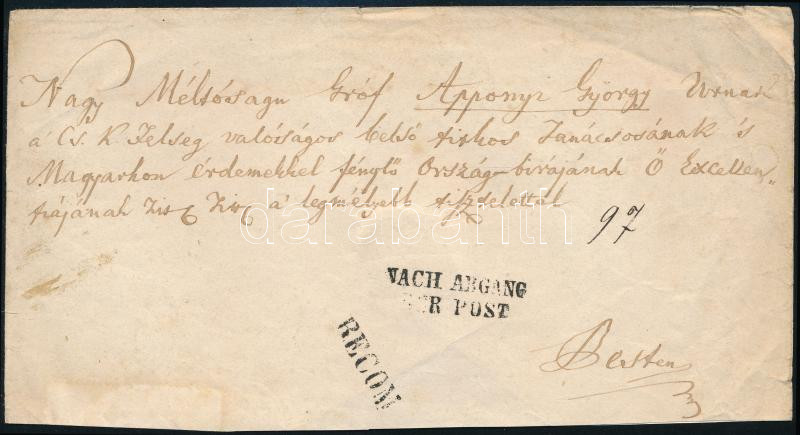 Nagy Méltóságu Gróf Apponyi György Urnak
a' Cs. K. Felseg valóságos belső titkos Tanácsosának és
Magyarhon érdemekkel fénylő Ország-birájának Ő Excellen„
tiájának a' legmélyebb tisztelettel
97
darabanth
NACH ABGANG
DER POST
RECOM